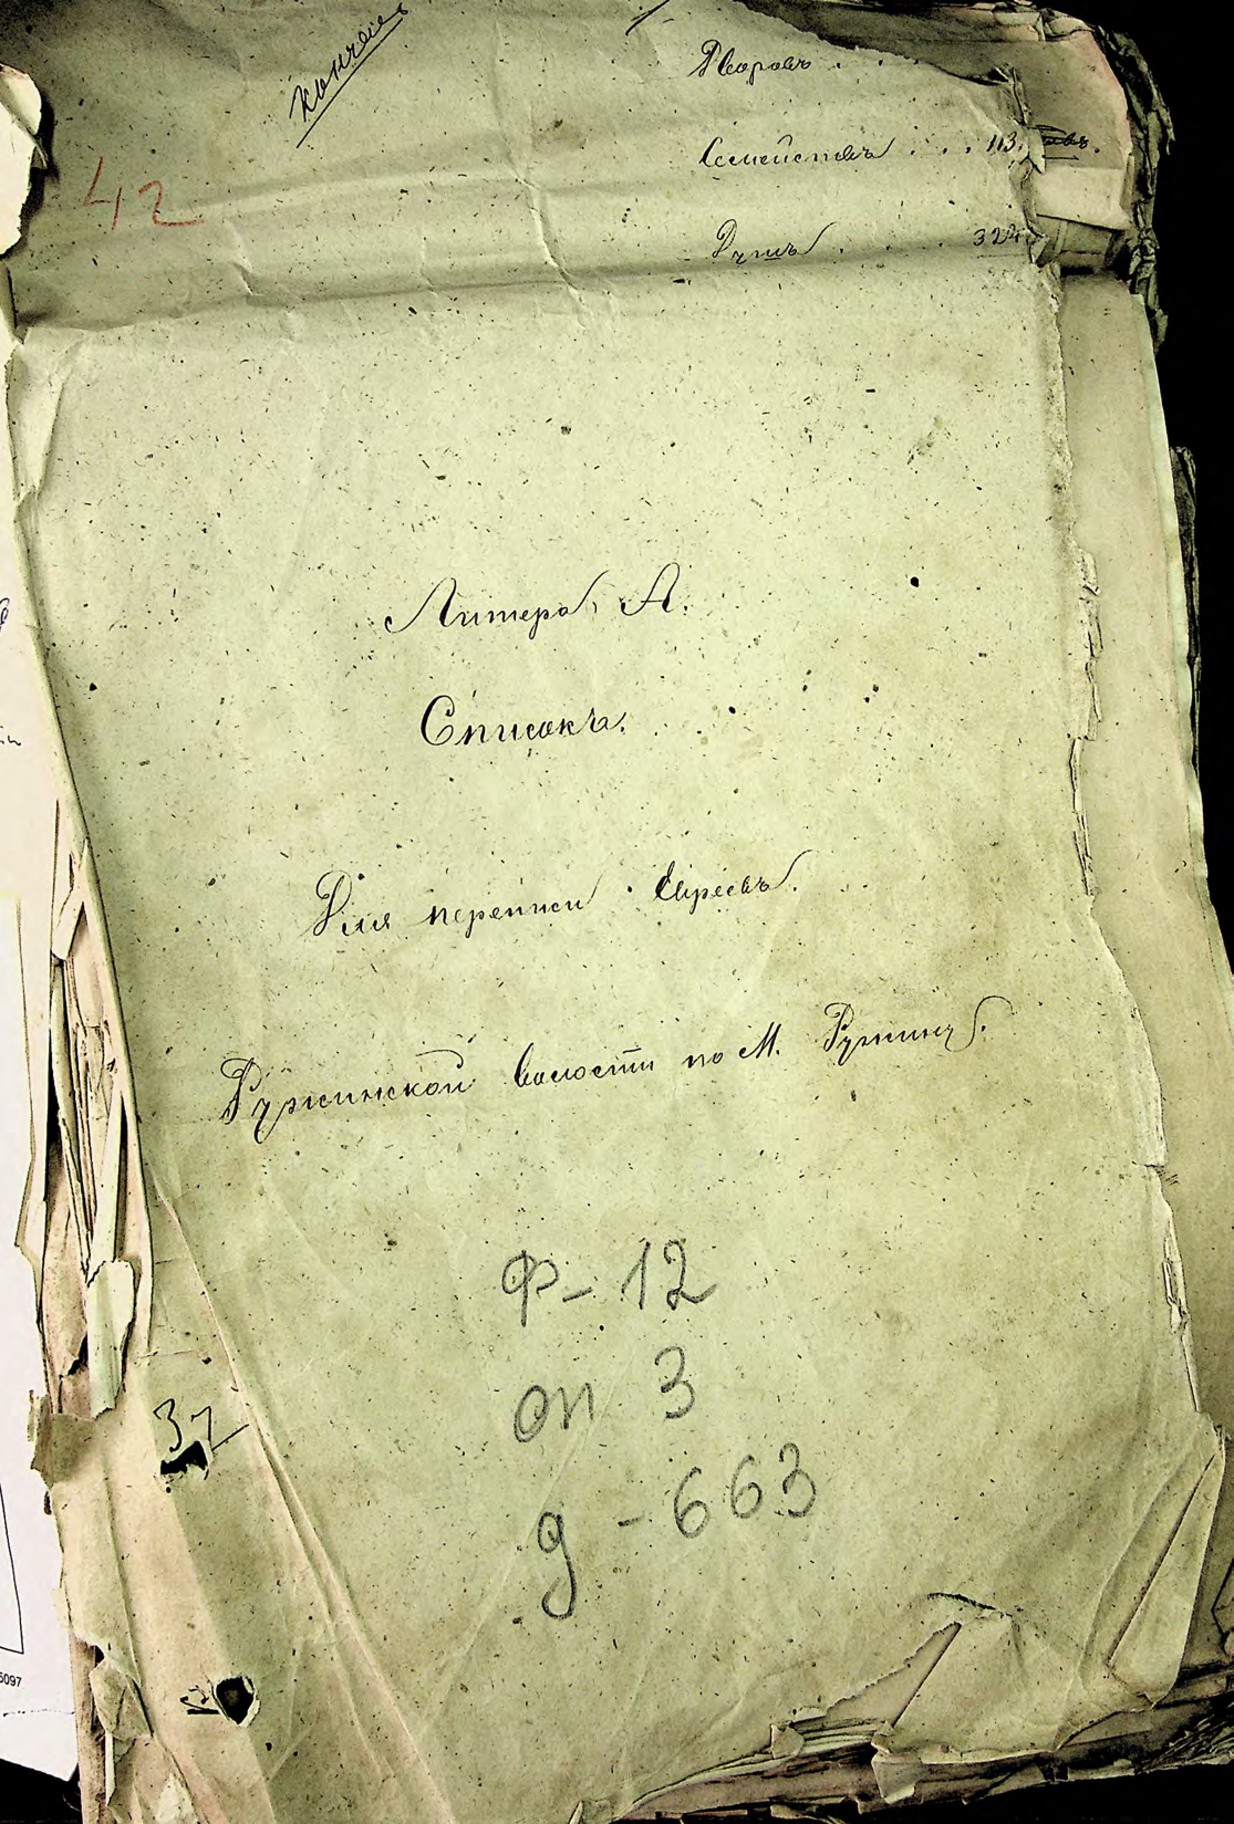 Дворовъ . . .
42
Семействъ . . . 113.
Душъ . . . 324
Литера, А.
Списокъ.
Для переписи Евреевъ.
Ружинской волости по М. Ружину.
Ф- 12
оп 3
д - 663
32
5097